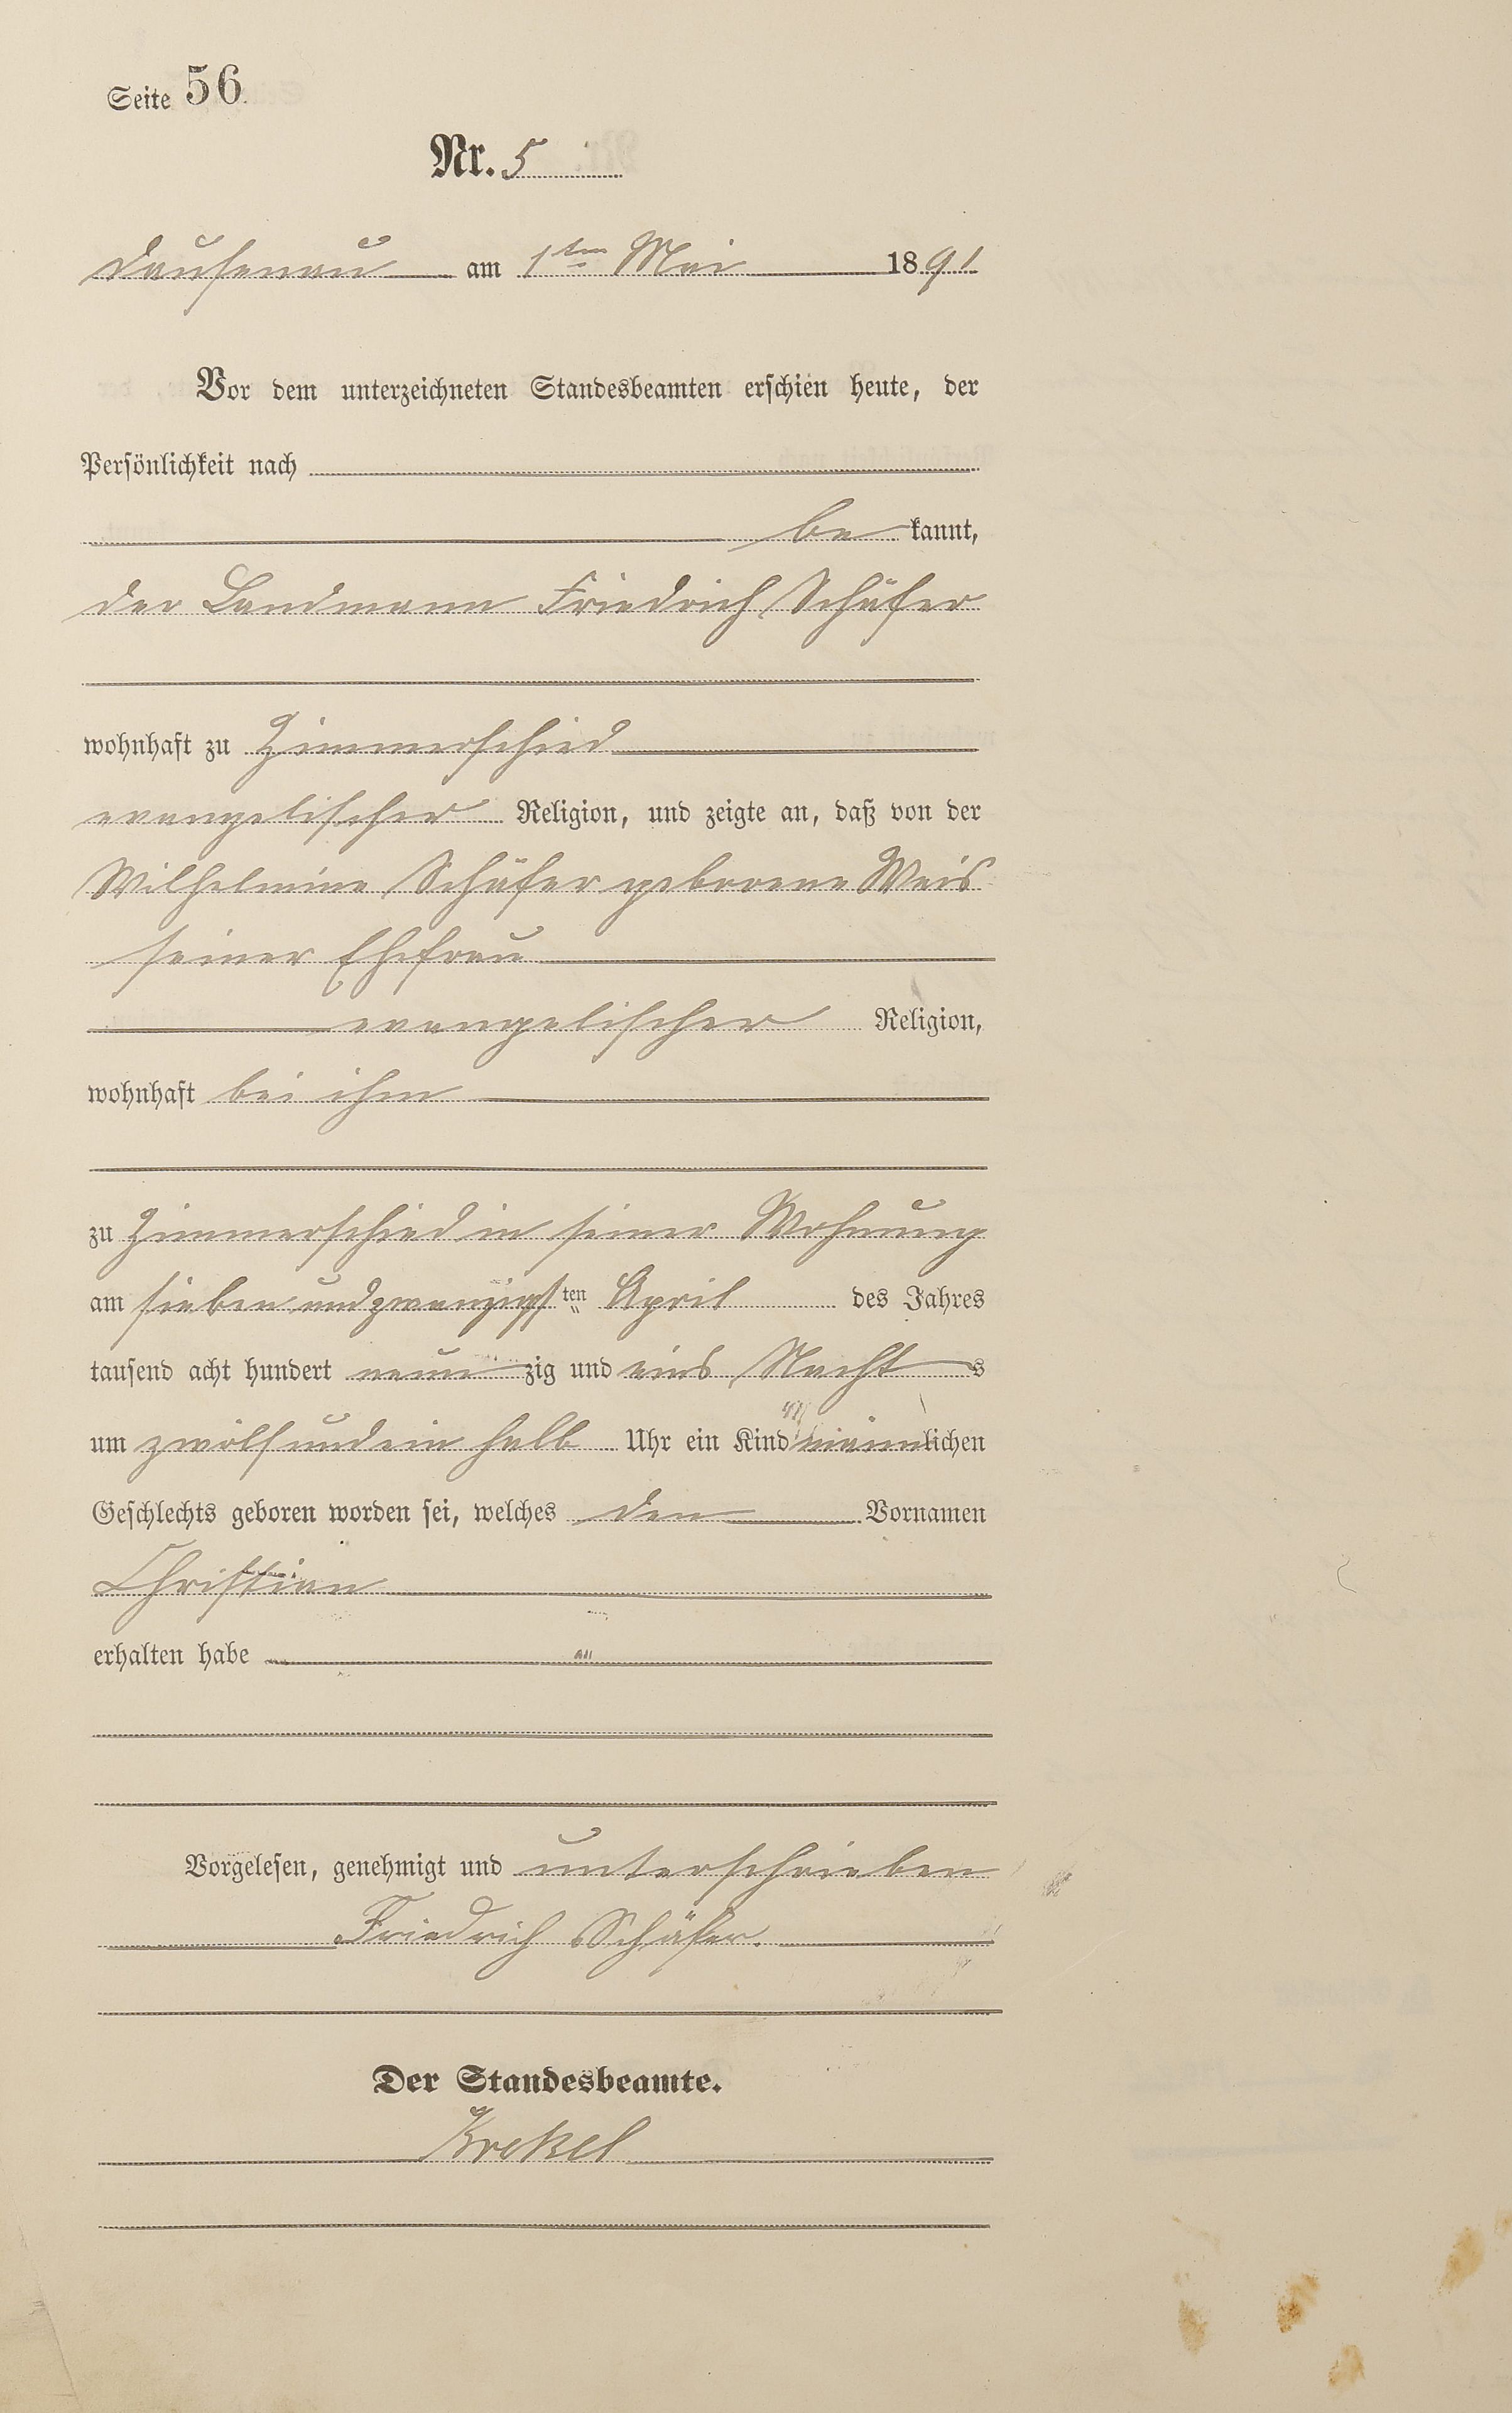 Seite 56.
Nr. 5
Dausenau am 1ten Mai 1891
Vor dem unterzeichneten Standesbeamten erschien heute, der
Persönlichkeit nach
be kannt,
der Landmann Friedrich Schäfer
wohnhaft zu Zimmerschied
evangelischer Religion, und zeigte an, daß von der
Wilhelmine Schäfer geborene Weis
seiner Ehefrau
evangelischer Religion,
wohnhaft bei ihm
zu Zimmerschied in seiner Wohnung
am sieben und zwanzigsten April des Jahres
tausend acht hundert neun zig und eins Nachts
um zwölf und ein halb Uhr ein Kind männlichen
Geschlechts geboren worden sei, welches den Vornamen
Christian
erhalten habe
Vorgelesen, genehmigt und unterschrieben
Friedrich Schäfer.
Der Standesbeamte.
Krekel